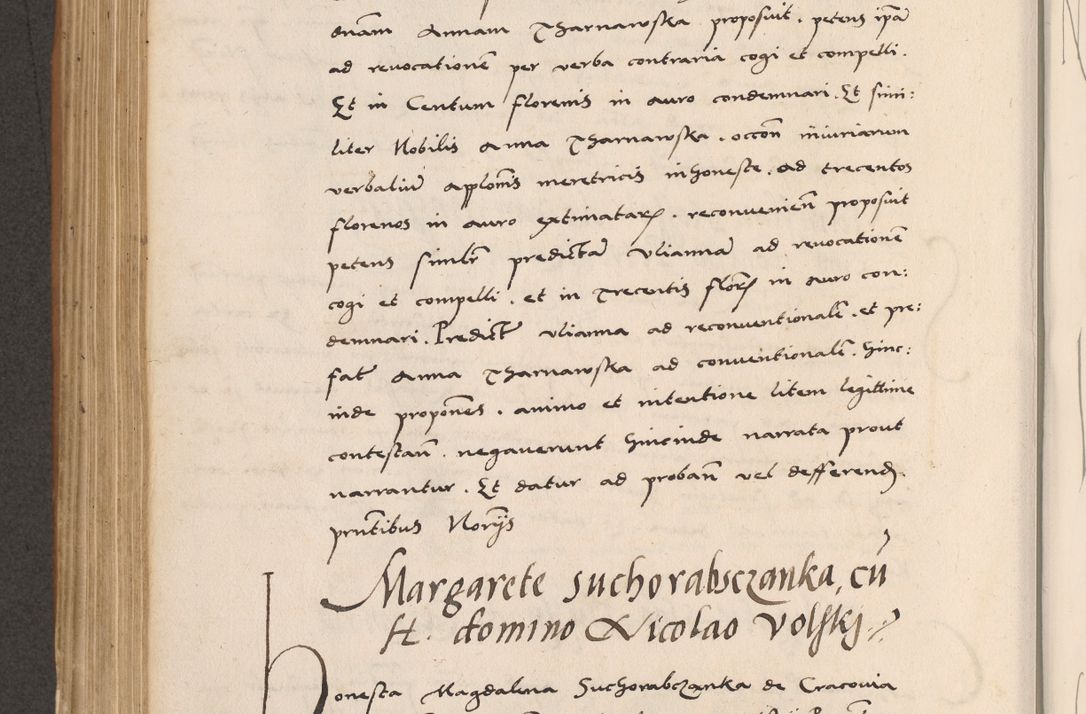 onam Annam Tharnawska proposuit. petens ipā
ad revocationē per verba contraria cogi et compelli.
Et in Centum florenis in auro condemnari. Et simi:
liter Nobilis Anna Tharnawska. occōn iniuriarum
verbaliū applōnis meretricis inhoneste. ad trecentos
florenos in auro extimatarꝝ. reconvenieñ proposuit
petens similr̄ predictā Uliannā ad revocationē
cogi et compelli. et in Trecentis florꝝ in auro con:
demnari. Predict̄ Ulianna ad reconventionalē. et pre:
fat̄ Anna Tharnawska ad conventionalē. hinc:
inde propōnes. animo et intentione litem legittime
contestañ. negaverunt hincinde narrata prout
narrantur. Et datur ad probañ vel defferend.
prn̄tibus Norijs
Margarete Suchorabsczanka, cū
H. domino Nicolao Volskj
Honesta Magdalena Suchorabczanka de Cracovia